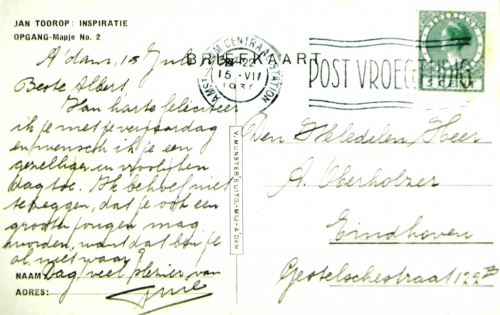 JAN TOOROP: INSPIRATIE
OPGANG-Mapje No. 2
BRIEFKAART
A'dam, 15 Juli
Beste Albert
Van harte feliciteer
ik je met je verjaardag
en wensch ik je een
gezellige en vroolijken
dag toe. Ik behoef niet
te zeggen, dat je ook een
groote jongen mag
worden, want dat ben je
al, niet waar.
Dag, veel plezier van
NAAM:
ADRES:
V. MUNSTER'S UITG.-MIJ-A'DAM
AMSTERDAM CENTRAAL STATION
15 VII
POST VROEGTIJDIG
3 CENT
Den Weledelen Heer
A. Oberholzer
Eindhoven
Gestelschestraat 129B